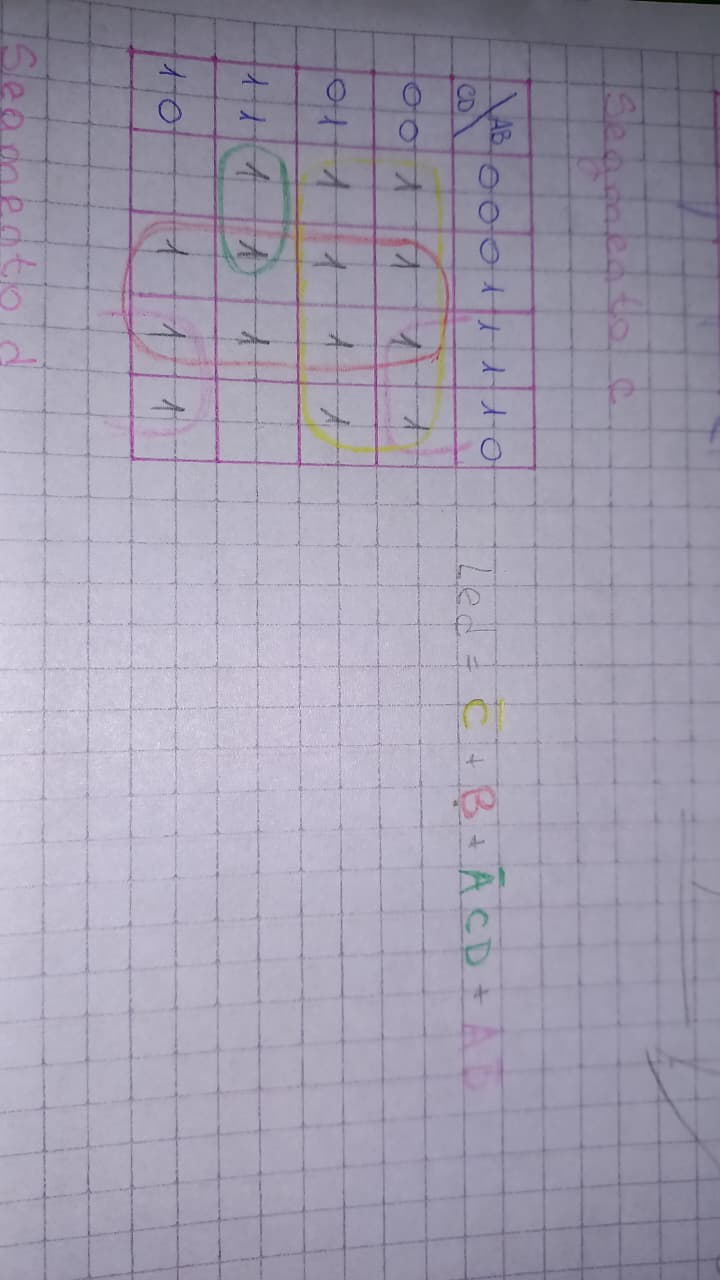 Segmento c
AB 00 01 11 10
CD
00 1 1 1 1
01 1 1 1 1
11 1 1 1
10 1 1 1
Led = C̅ + B + A̅CD + AD̅
Segmento d